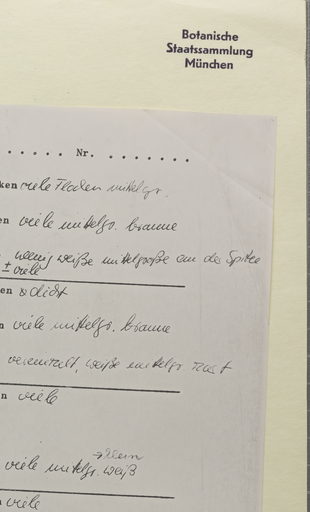 Botanische
Staatssammlung
München
. . . . . Nr. . . . . . . . .
ken viele Fladen mittelgr.
en viele mittelgr. braune
wenig weiße mittelgroße an der Spitze
± viele
en dicht
n viele mittelgr. braune
vereinzelt, weiße mittelgr.
n viele
→ klein
viele mittelgr. weiß
n viele